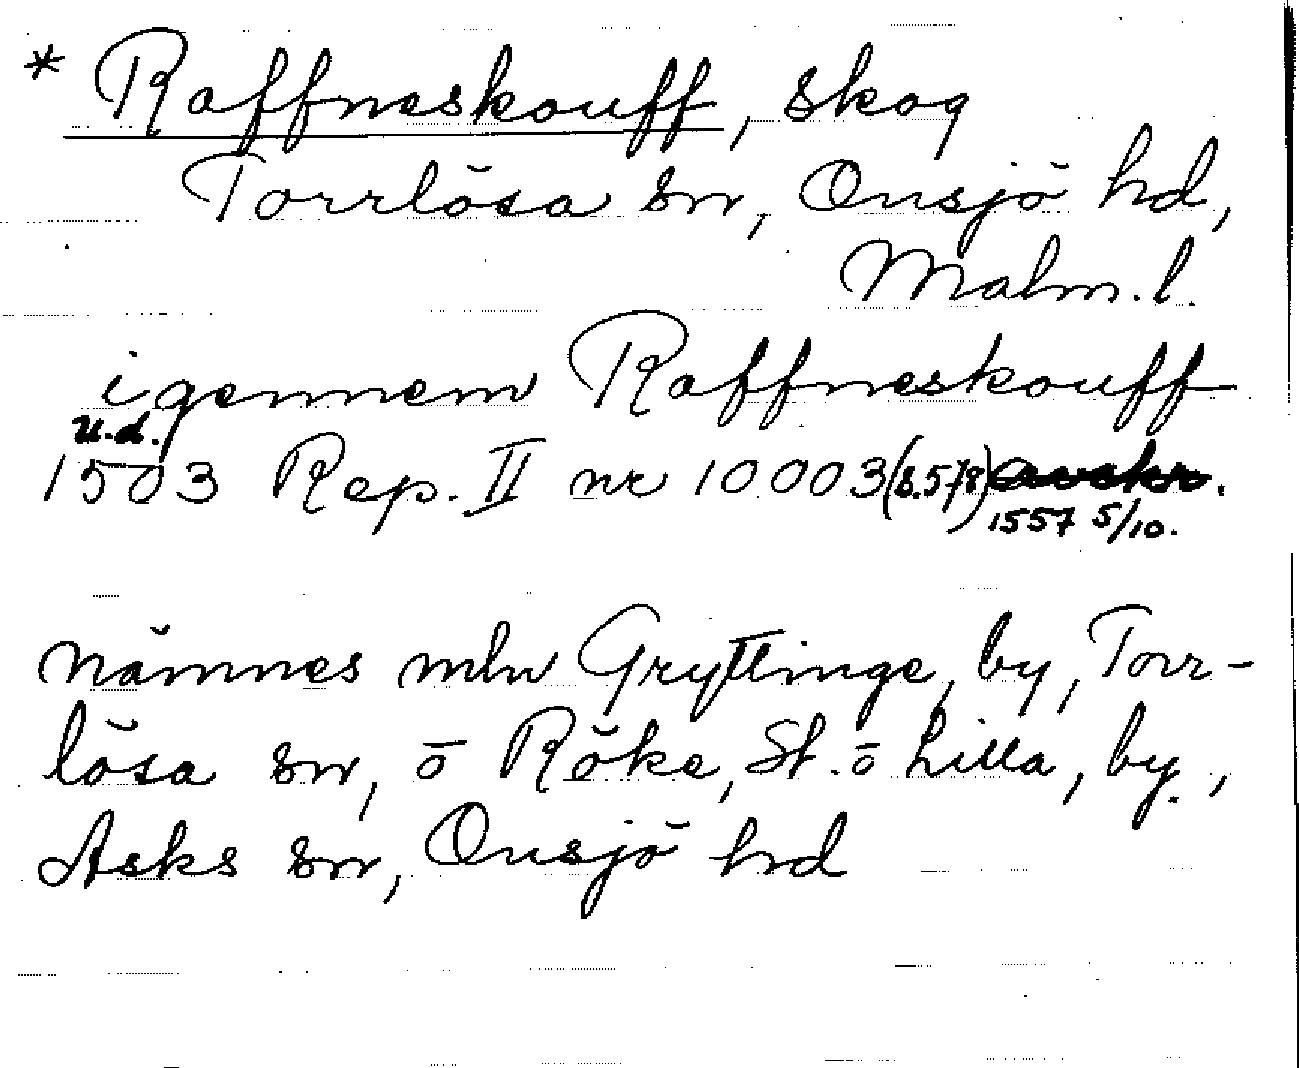 * Raffneskouff, skog
Torrlösa sn, Onsjö hd,
Malm. l.
igennem Raffneskouff
u.d.
1503 Rep. II nr 10003 (s. 578) avskr.
1557 5/10.
nämnes mln Gryttinge, by, Torr-
lösa sn, o Röke, St. o Lilla, by,
Asks sn, Onsjö hd